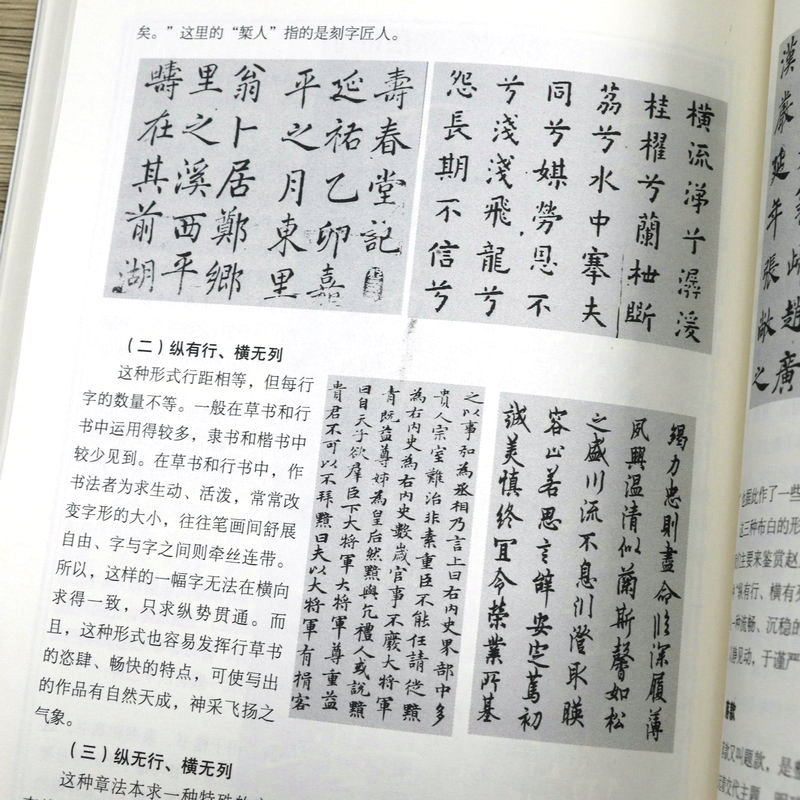 矣。”这里的“椠人”指的是刻字匠人。
壽春堂記
延祐乙卯嘉
平之月東里
翁卜居鄭鄉
里之溪西平
疇在其前湖
橫流涕兮潺湲
桂櫂兮蘭枻斲
荔兮水中搴夫
同兮媒勞恩不
兮淺淺飛龍兮
怨長期不信兮
（二）纵有行、横无列
这种形式行距相等，但每行
字的数量不等。一般在草书和行
书中运用得较多，隶书和楷书中
较少见到。在草书和行书中，作
书法者为求生动、活泼，常常改
变字形的大小，往往笔画间舒展
自由、字与字之间则牵丝连带。
所以，这样的一幅字无法在横向
求得一致，只求纵势贯通。而
且，这种形式也容易发挥行草书
的恣肆、畅快的特点，可使写出
的作品有自然天成，神采飞扬之
气象。
之以事和為丞相乃言上曰右内史界部中多
貴人宗室難治非素重臣不能任請徙黯
為右内史為右内史數歲官事不廢大將軍
青既益尊姊為皇后然黯與亢禮人或說黯
曰自天子欲羣臣下大將軍大將軍尊重益
貴君不可以不拜黯曰夫以大將軍有揖客
竭力忠則盡命臨深履薄
夙興温清似蘭斯馨如松
之盛川流不息川澄取暎
容止若思言辭安定篤初
誠美慎終宜令榮業所基
（三）纵无行、横无列
这种章法本求一种特殊的
延年張敞之
趙廣
据此作了一些
三种布白的形
主要来鉴赏赵
“纵有行、横有列
一种流畅、沉稳的
见动，于谨严
款又叫题款，是整
交代主题